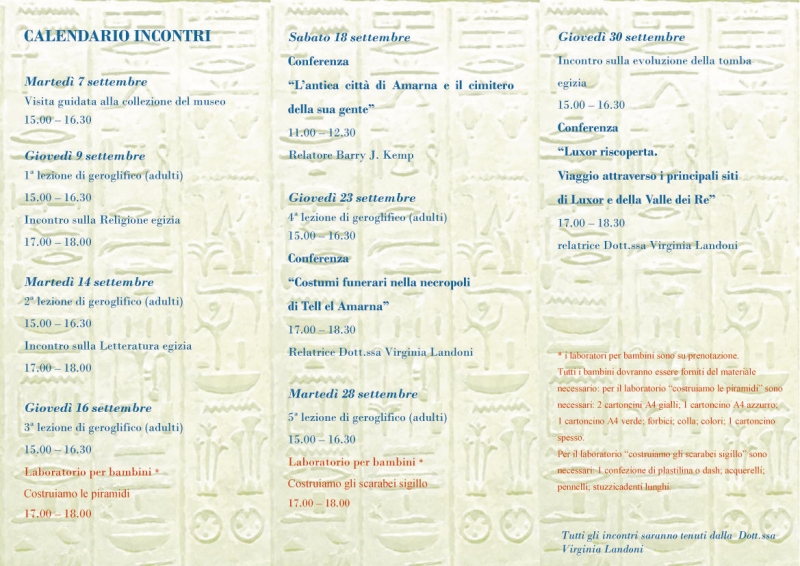 CALENDARIO INCONTRI
Martedì 7 settembre
Visita guidata alla collezione del museo
15.00 – 16.30
Giovedì 9 settembre
1ª lezione di geroglifico (adulti)
15.00 – 16.30
Incontro sulla Religione egizia
17.00 – 18.00
Martedì 14 settembre
2ª lezione di geroglifico (adulti)
15.00 – 16.30
Incontro sulla Letteratura egizia
17.00 – 18.00
Giovedì 16 settembre
3ª lezione di geroglifico (adulti)
15.00 – 16.30
Laboratorio per bambini *
Costruiamo le piramidi
17.00 – 18.00
Sabato 18 settembre
Conferenza
“L’antica città di Amarna e il cimitero
della sua gente”
11.00 – 12.30
Relatore Barry J. Kemp
Giovedì 23 settembre
4ª lezione di geroglifico (adulti)
15.00 – 16.30
Conferenza
“Costumi funerari nella necropoli
di Tell el Amarna”
17.00 – 18.30
Relatrice Dott.ssa Virginia Landoni
Martedì 28 settembre
5ª lezione di geroglifico (adulti)
15.00 – 16.30
Laboratorio per bambini *
Costruiamo gli scarabei sigillo
17.00 – 18.00
Giovedì 30 settembre
Incontro sulla evoluzione della tomba
egizia
15.00 – 16.30
Conferenza
“Luxor riscoperta.
Viaggio attraverso i principali siti
di Luxor e della Valle dei Re”
17.00 – 18.30
relatrice Dott.ssa Virginia Landoni
* i laboratori per bambini sono su prenotazione.
Tutti i bambini dovranno essere forniti del materiale
necessario: per il laboratorio “costruiamo le piramidi” sono
necessari: 2 cartoncini A4 gialli; 1 cartoncino A4 azzurro;
1 cartoncino A4 verde; forbici; colla; colori; 1 cartoncino
spesso.
Per il laboratorio “costruiamo gli scarabei sigillo” sono
necessari: 1 confezione di plastilina o dash; acquerelli;
pennelli; stuzzicadenti lunghi.
Tutti gli incontri saranno tenuti dalla Dott.ssa
Virginia Landoni